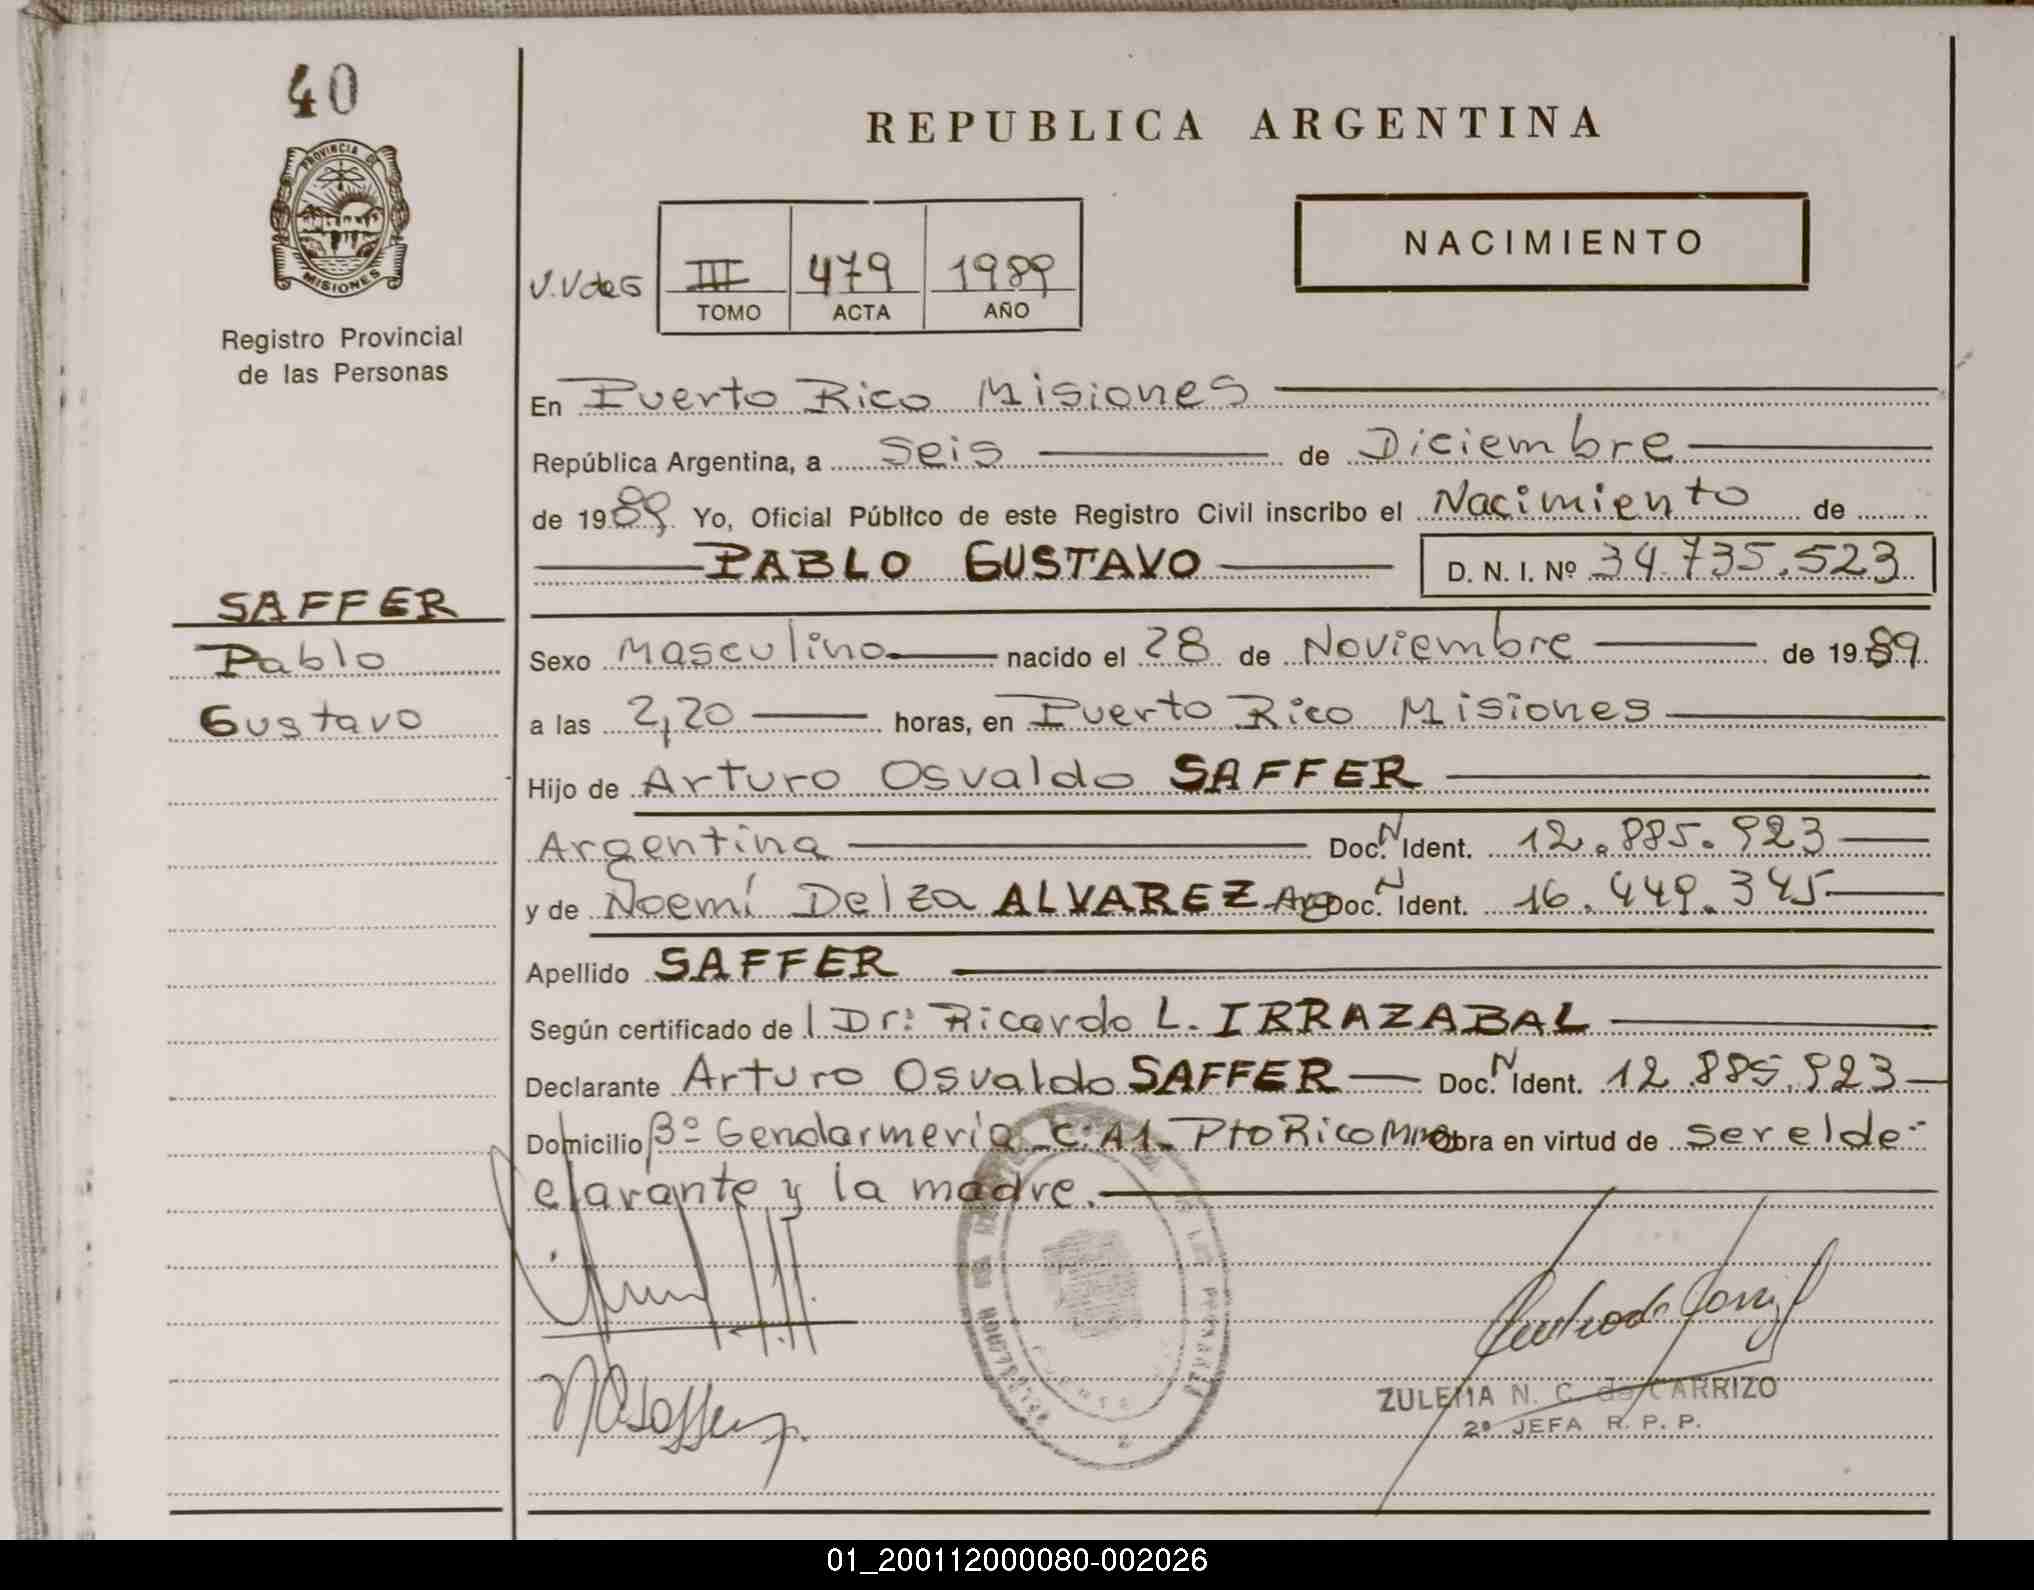 40
PROVINCIA DE
MISIONES
Registro Provincial
de las Personas
SAFFER
Pablo
Gustavo
REPUBLICA ARGENTINA
NACIMIENTO
III 479 1989
TOMO ACTA AÑO
En Puerto Rico Misiones
República Argentina, a seis de Diciembre
de 1989 Yo, Oficial Público de este Registro Civil inscribo el Nacimiento de
PABLO GUSTAVO D. N. I. Nº 34.735.523
Sexo Masculino nacido el 28 de Noviembre de 1989
a las 2,20 horas, en Puerto Rico Misiones
Hijo de Arturo Osvaldo SAFFER
Argentina Doc. N Ident. 12.885.923
y de Noemí Delza ALVAREZ Arg Doc. N Ident. 16.449.345
Apellido SAFFER
Según certificado de l Dr: Ricardo L. IRRAZABAL
Declarante Arturo Osvaldo SAFFER Doc. N Ident. 12.885.923
Domicilio Bº Gendarmería C: A1 - Pto Rico Mnes Obra en virtud de ser el de-
clarante y la madre.
ZULEMA N. C. de CARRIZO
2º JEFA R. P. P.
01_200112000080-002026